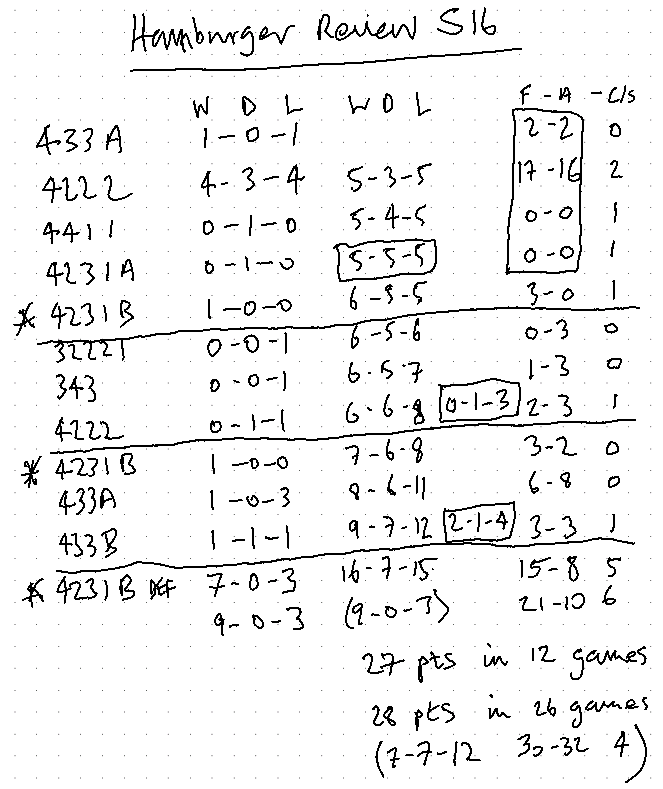 Hamburger Review S16
W D L W D L F - A - C/s
433A 1-0-1 2-2 0
4222 4-3-4 5-3-5 17-16 2
4411 0-1-0 5-4-5 0-0 1
4231A 0-1-0 5-5-5 0-0 1
* 4231B 1-0-0 6-5-5 3-0 1
32221 0-0-1 6-5-6 0-3 0
343 0-0-1 6-5-7 1-3 0
4222 0-1-1 6-6-8 0-1-3 2-3 1
* 4231B 1-0-0 7-6-8 3-2 0
433A 1-0-3 8-6-11 6-8 0
433B 1-1-1 9-7-12 2-1-4 3-3 1
* 4231B DEF 7-0-3 16-7-15 15-8 5
9-0-3 (9-0-3) 21-10 6
27 pts in 12 games
28 pts in 26 games
(7-7-12 30-32 4)